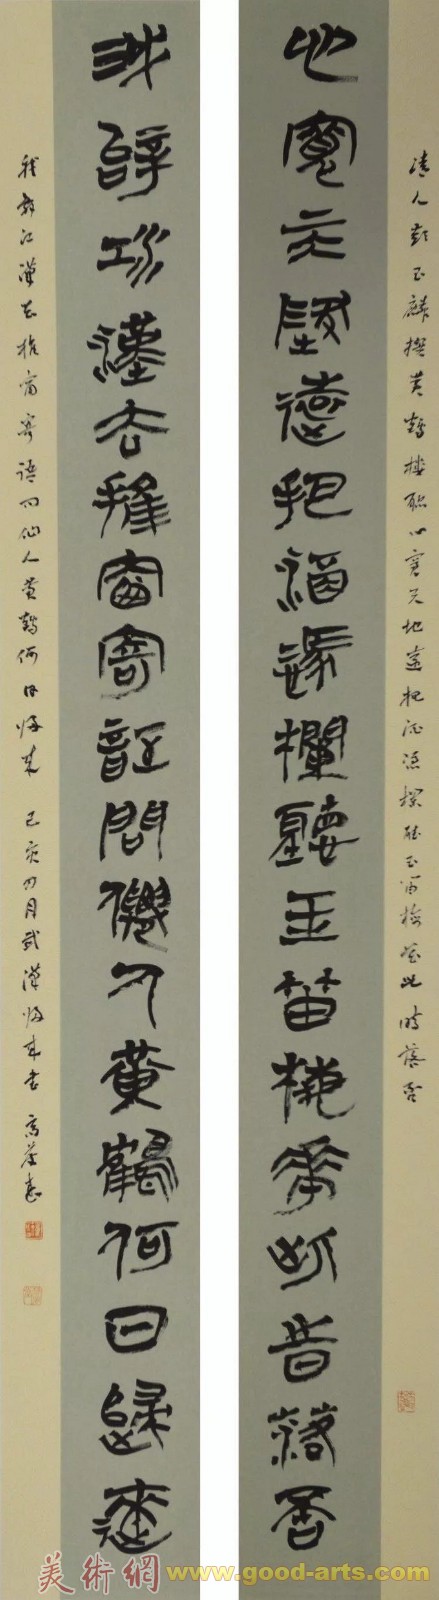 清人彭玉麟撰黃鶴樓聯心寬天地遠把酒憑欄聽玉笛梅花此時落否
心寬天地遠把酒憑欄聽玉笛梅花此時落否
我辭江漢去推窗寄語問仙人黃鶴何日歸來
我辭江漢去推窗寄語問仙人黃鶴何日歸來 己亥四月武漢歸來書 高慶春
美術網 www.good-arts.com